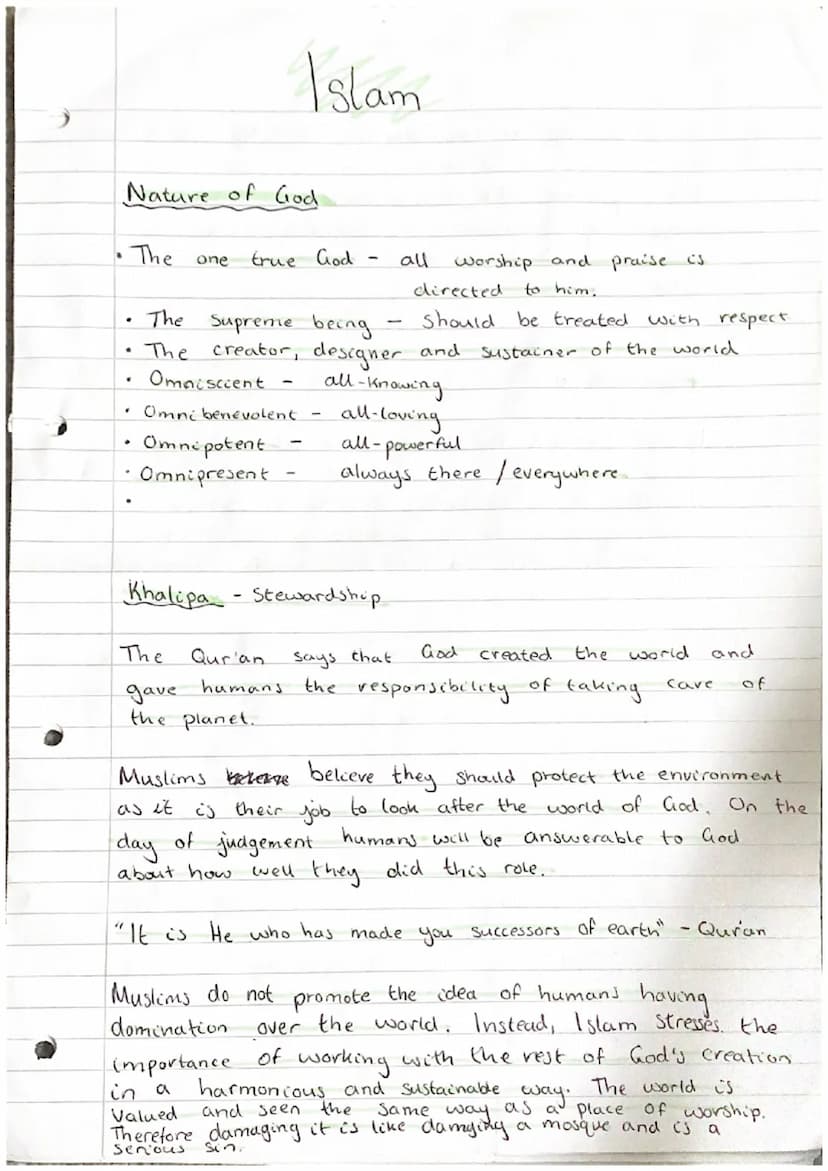 Islam
Nature of God
• The one true God - all worship and praise is
directed to him.
• The supreme being - should be treated with respect
• The creator, designer and sustainer of the world
• Omniscient - all-knowing
• Omnibenevolent - all-loving
• Omnipotent - all-powerful
• Omnipresent - always there / everywhere
•
Khalipa - Stewardship
The Qur'an says that God created the world and
gave humans the responsibility of taking care of
the planet.
Muslims believe they should protect the environment
as it is their job to look after the world of God. On the
day of judgement humans will be answerable to God
about how well they did this role.
"It is He who has made you successors of earth" - Qur'an
Muslims do not promote the idea of humans having
domination over the world. Instead, Islam stresses the
importance of working with the rest of God's creation
in a harmonious and sustainable way. The world is
valued and seen the same way as a place of worship.
Therefore damaging it is like damging a mosque and is a
serious sin.